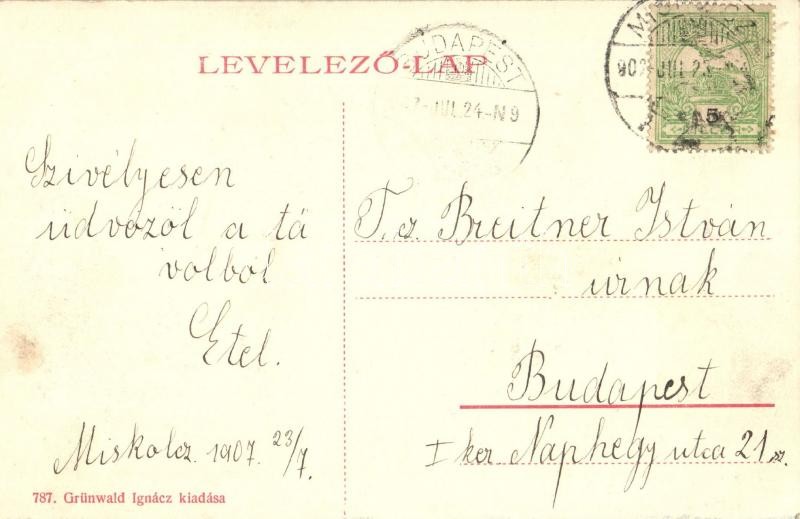 LEVELEZŐ-LAP
BUDAPEST
7 JUL. 24-N9
907 JUL 23
5
Szivélyesen
üdvözöl a tá
volból
Etel.
Miskolcz. 1907. 23/7.
T. cz. Breitner István
úrnak
Budapest
I ker Naphegy utca 21 sz.
787. Grünwald Ignácz kiadása